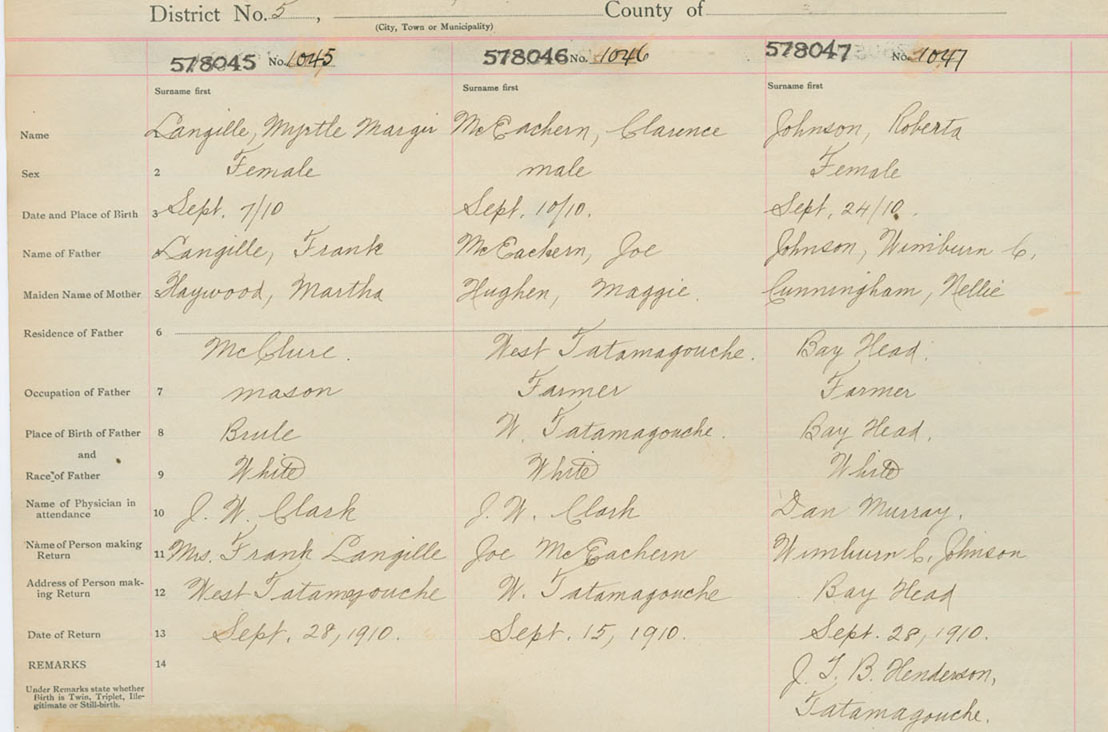 District No. 5, County of
(City, Town or Municipality)
578045 No. 1045 578046 No. 1046 578047 No. 1047
Surname first Surname first Surname first
Name Langille, Myrtle Margir McEachern, Clarence Johnson, Roberta
Sex 2 Female male Female
Date and Place of Birth 3 Sept. 7/10 Sept. 10/10. Sept. 24/10.
Name of Father Langille, Frank McEachern, Joe Johnson, Wimburn C.
Maiden Name of Mother Haywood, Martha Hughen, Maggie. Cunningham, Nellie
Residence of Father 6
McClure. West Tatamagouche. Bay Head.
Occupation of Father 7 mason Farmer Farmer
Place of Birth of Father 8 Brule W. Tatamagouche. Bay Head.
and
Race of Father 9 White White White
Name of Physician in
attendance 10 J. W. Clark J. W. Clark Dan Murray.
Name of Person making
Return 11 Mrs. Frank Langille Joe McEachern Wimburn C. Johnson
Address of Person mak-
ing Return 12 West Tatamagouche W. Tatamagouche Bay Head
Date of Return 13 Sept. 28, 1910. Sept. 15, 1910. Sept. 28, 1910.
REMARKS 14
J. T. B. Henderson,
Under Remarks state whether
Birth is Twin, Triplet, Ille-
gitimate or Still-birth.
Tatamagouche.